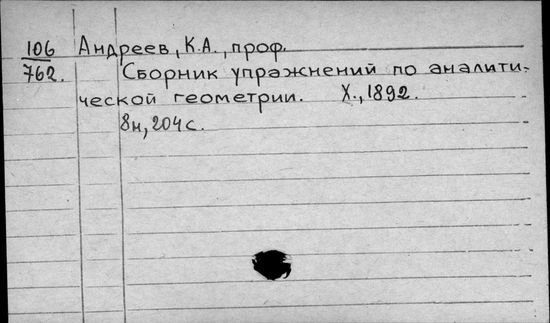 106 Андреев, К.А., проф.
762. Сборник упражнений по аналити-
ческой геометрии. Х., 1892.
8н, 204 с.